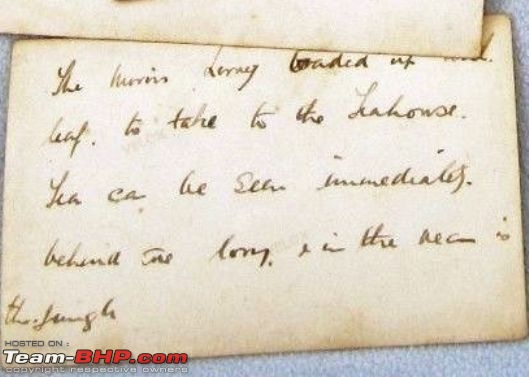 The Morris Lorrey loaded up and.
leaf. to take to the Teahouse.
Tea can be seen immediately.
behind the lorry, & in the rear is
the Jungle
HOSTED ON :
Team-BHP.com
copyright respective owners